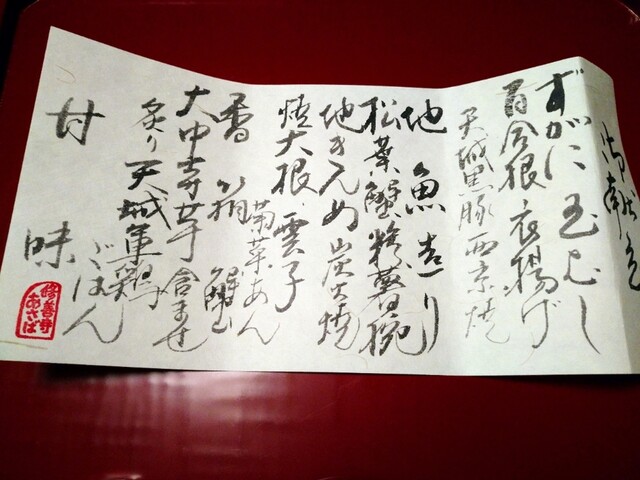 御献立
ずがに玉むし
百合根衣揚げ
天城黒豚西京焼
地魚造り
松葉蟹糝薯椀
地きんめ炭火焼
焼大根雲子
菊菜あん
香箱蟹
大中寺芋含ませ
炙り天城軍鶏
ごはん
甘味
修善寺
あさば